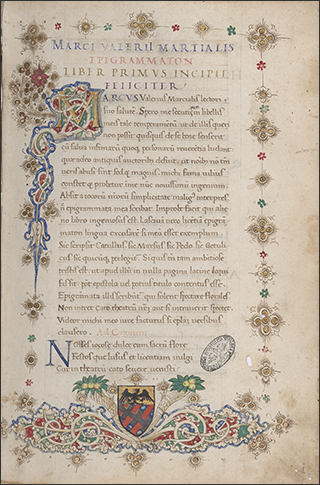 MARCI VALERII MARTIALIS
EPIGRAMMATON
LIBER PRIMVS INCIPIT
FELICITER
MARCVS Valerius Martialis lectori
suo salutē. Spero me secutum in libellis
meis tale temperamētū ut de illis queri
non possit quisquis de se bene senserit
cū salva infimarū quoq personarū reverētia ludant
quae adeo antiquis auctorib defuit ut noib nō tm̄
veris abusi sint sed et magnis. mihi fama vilius
constet et probetur ī me novissimū ingenium.
Absit a iocorū nrorū simplicitate malignus interpres
n epigrammata mea scribat. Improbe facit qui in alieno
libro ingeniosus est. Lasciva verborū
excusarē si meū esset exemplum.
Sic scripsit Catullus sic Marsus sic Pedo sic Getulicus
sic quicūq perlegitur. Siquis tn̄ tam ambitiose
tristis est ut apud illū in nulla pagina latine loqui
fas sit: pōt epistola vel potius titulo contentus esse.
Epigrāmata illis scribunt qui solent spectare florales
Non intret Cato theatrū nrm aut si intraverit spectet
Videor mihi meo iure facturus si eplam versibus
clausero. Ad Catonem
Nosses iocose dulce cum sacrū florę
Festosque lusus et licentiam vulgi
Cur in theatrū cato severe venisti